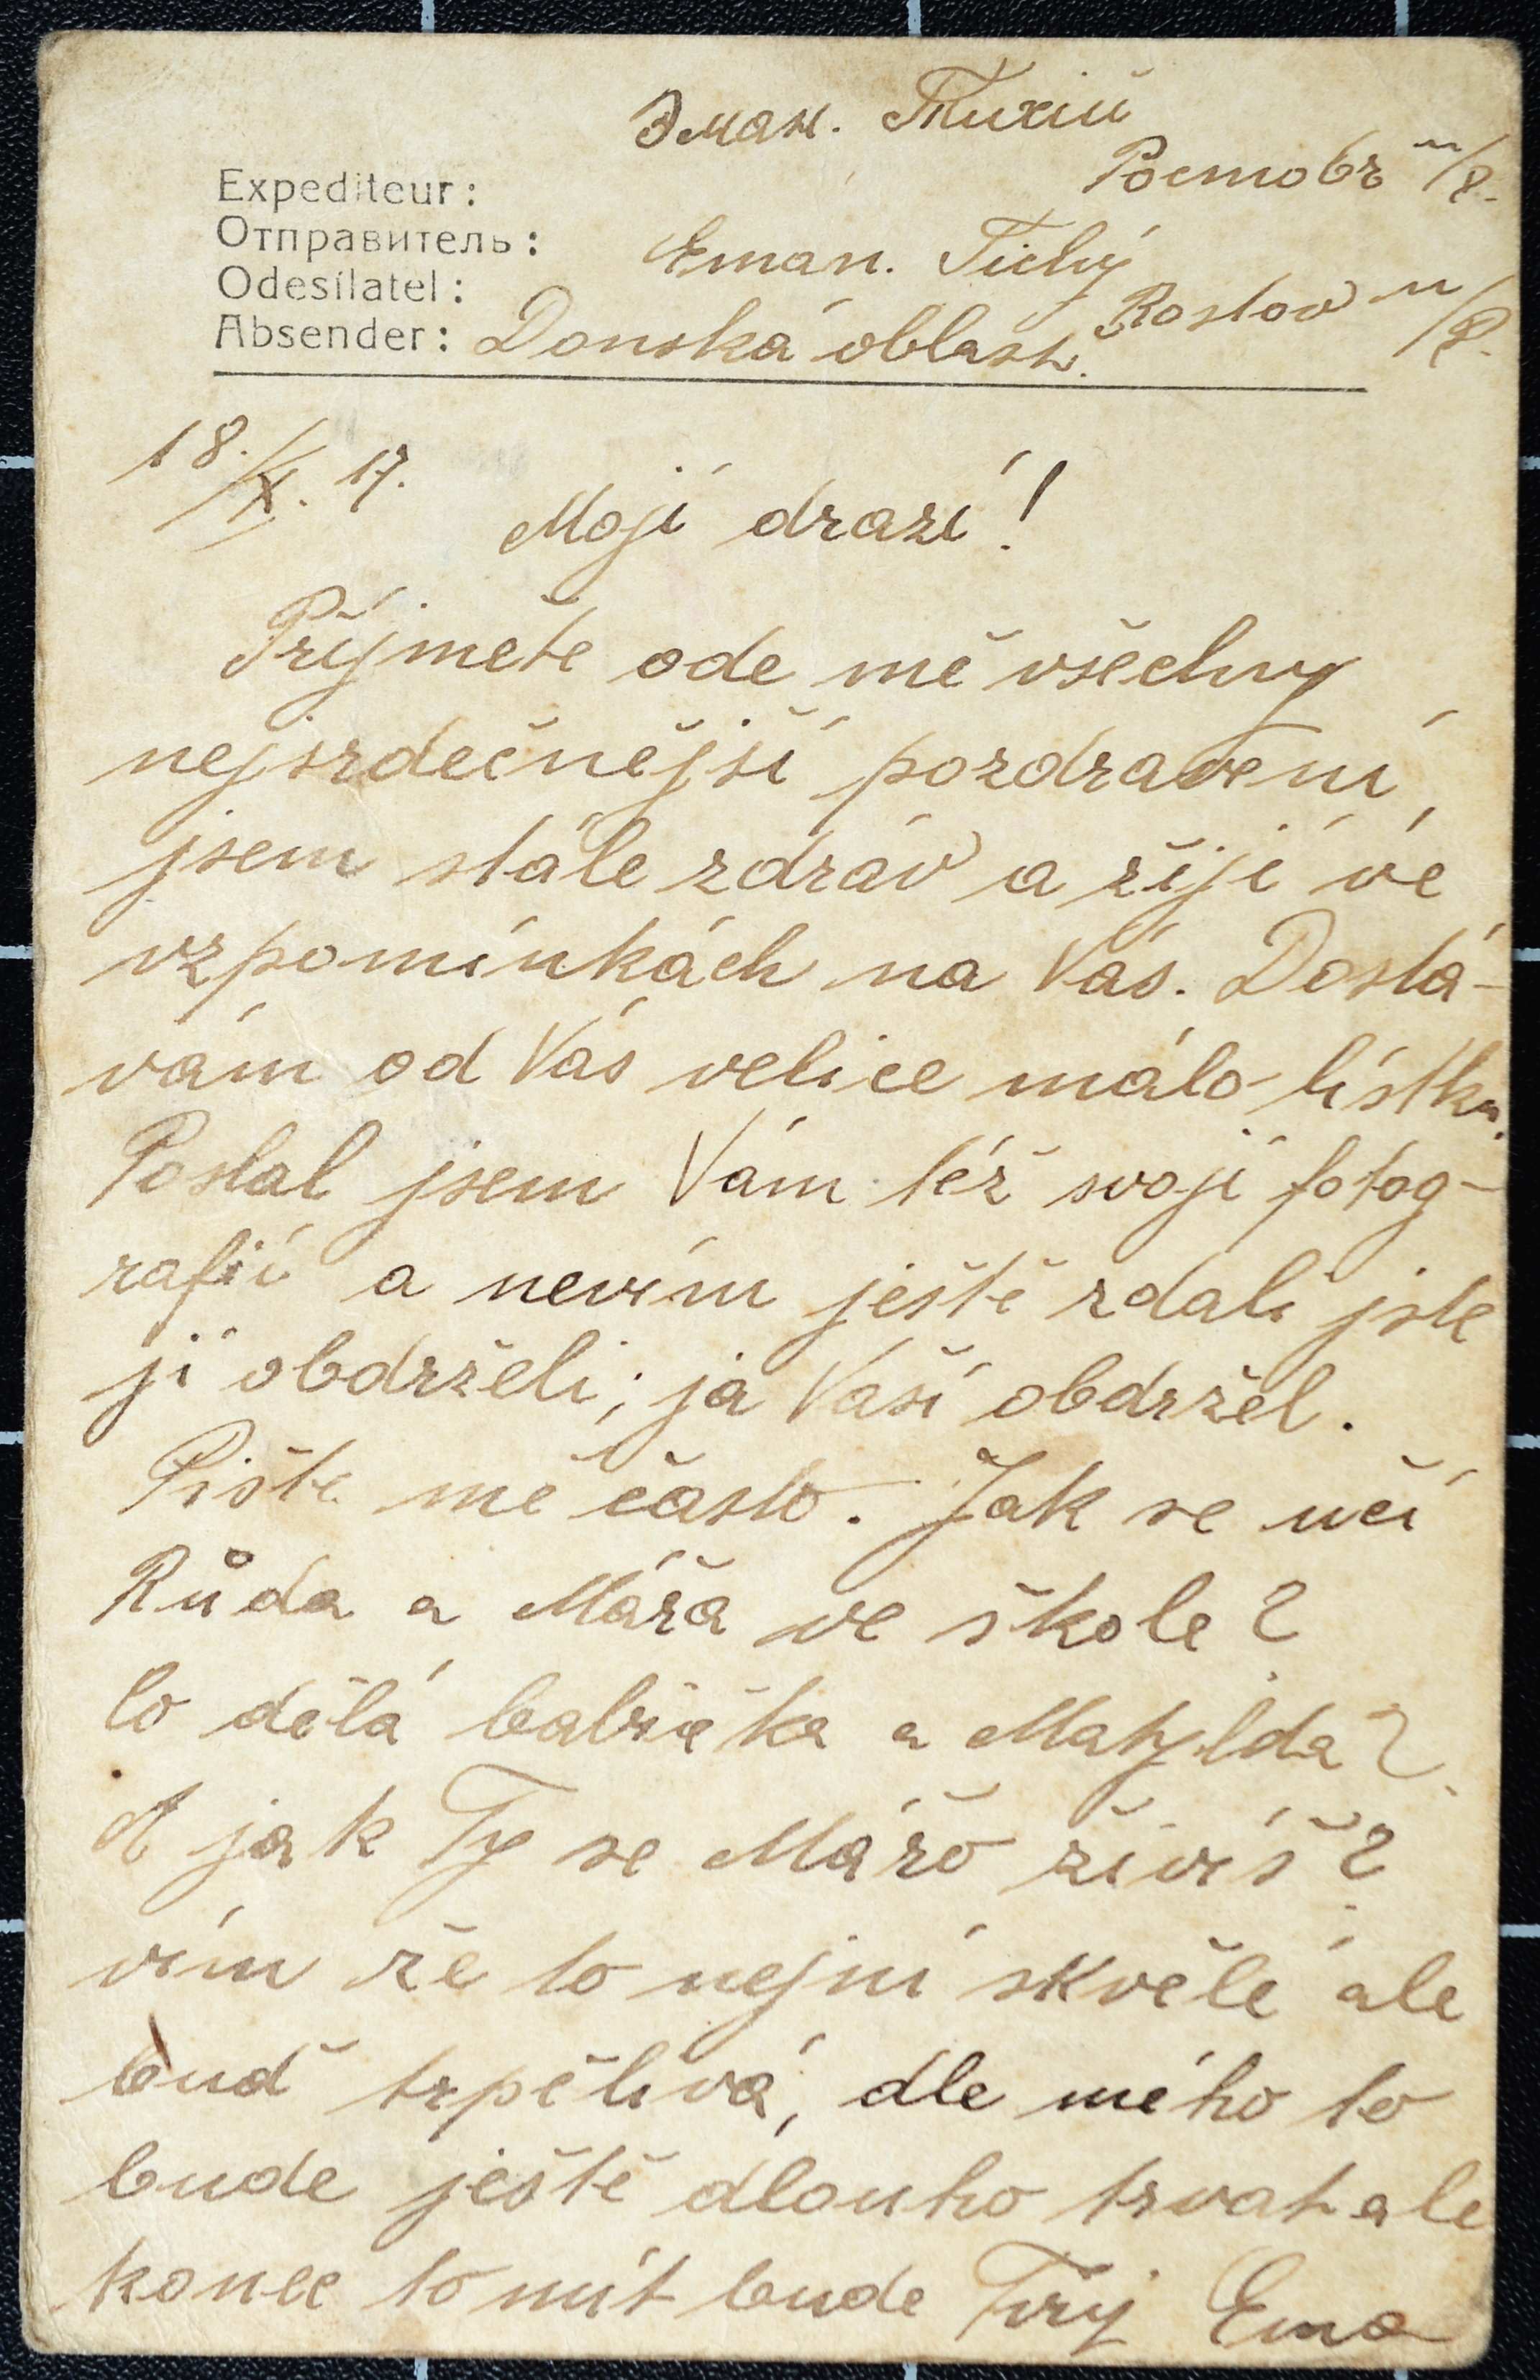 Эман. Тихій
Ростовъ н/Д.
Expediteur:
Отправитель:
Eman. Tichý
Odesílatel:
Rostov n/D.
Absender: Donská oblast.
18./X. 17.
Moji drazí!
Příjměte ode mě všechny
nejsrdečnější pozdravení,
jsem stále zdráv a žiji ve
vzpomínkách na Vás. Dostá-
vám od Vás velice málo lístků.
Poslal jsem Vám též svoji fotog-
rafii a nevím ještě zdali jste
ji obdrželi; já Vaší obdržel.
Pište mě často. Jak se učí
Růda a Máňa ve škole?
Co dělá babička a Matylda?
A jak Ty se Mářo živíš?
vím že to nejni skvělé ale
buď trpělivá, dle mého to
bude ještě dlouho trvat ale
konec to mít bude Tvůj Ema